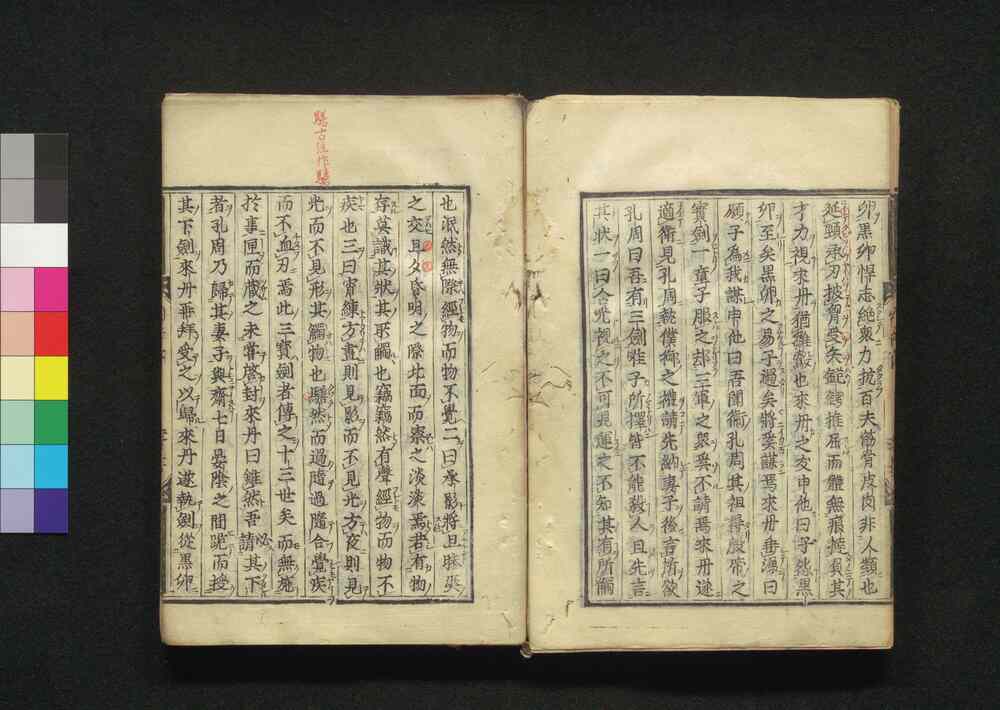 卵黒卵悍志絶衆力抗百夫筋骨皮肉非人類也
延頸承刃披胷受矢鋩鍔摧屈而體無痕撻負其
才力視來丹猶雛鷇也來丹之友申他曰子怨黒
卵至矣黒卵之易子過矣將奚謀焉來丹垂涕曰
願子為我謀申他曰吾聞衛孔周其祖得殷帝之
寳劒一童子服之却三軍之衆奚不請焉來丹遂
適衛見孔周執僕御之禮請先納妻子後言所欲
孔周曰吾有三劒唯子所擇皆不能殺人且先言
其状一曰含光視之不可見運之不知其有所觸
也泯然無際經物而物不覺二曰承影將旦昧爽
之交旦夕昏明之際北面而察之淡淡焉若有物
存莫識其状其所觸也竊竊然有聲經物而物不
疾也三曰宵練方晝則見影而不見光方夜則見
光而不見形其觸物也騞然而過隨過隨合覺疾
而不血刃焉此三寳劒者傳之十三世矣而無施
於事匣而藏之未嘗啓封來丹曰雖然吾必請其下
者孔周乃歸其妻子與齋七日晏陰之間跪而授
其下劒來丹再拜受之以歸來丹遂執劒從黒卵